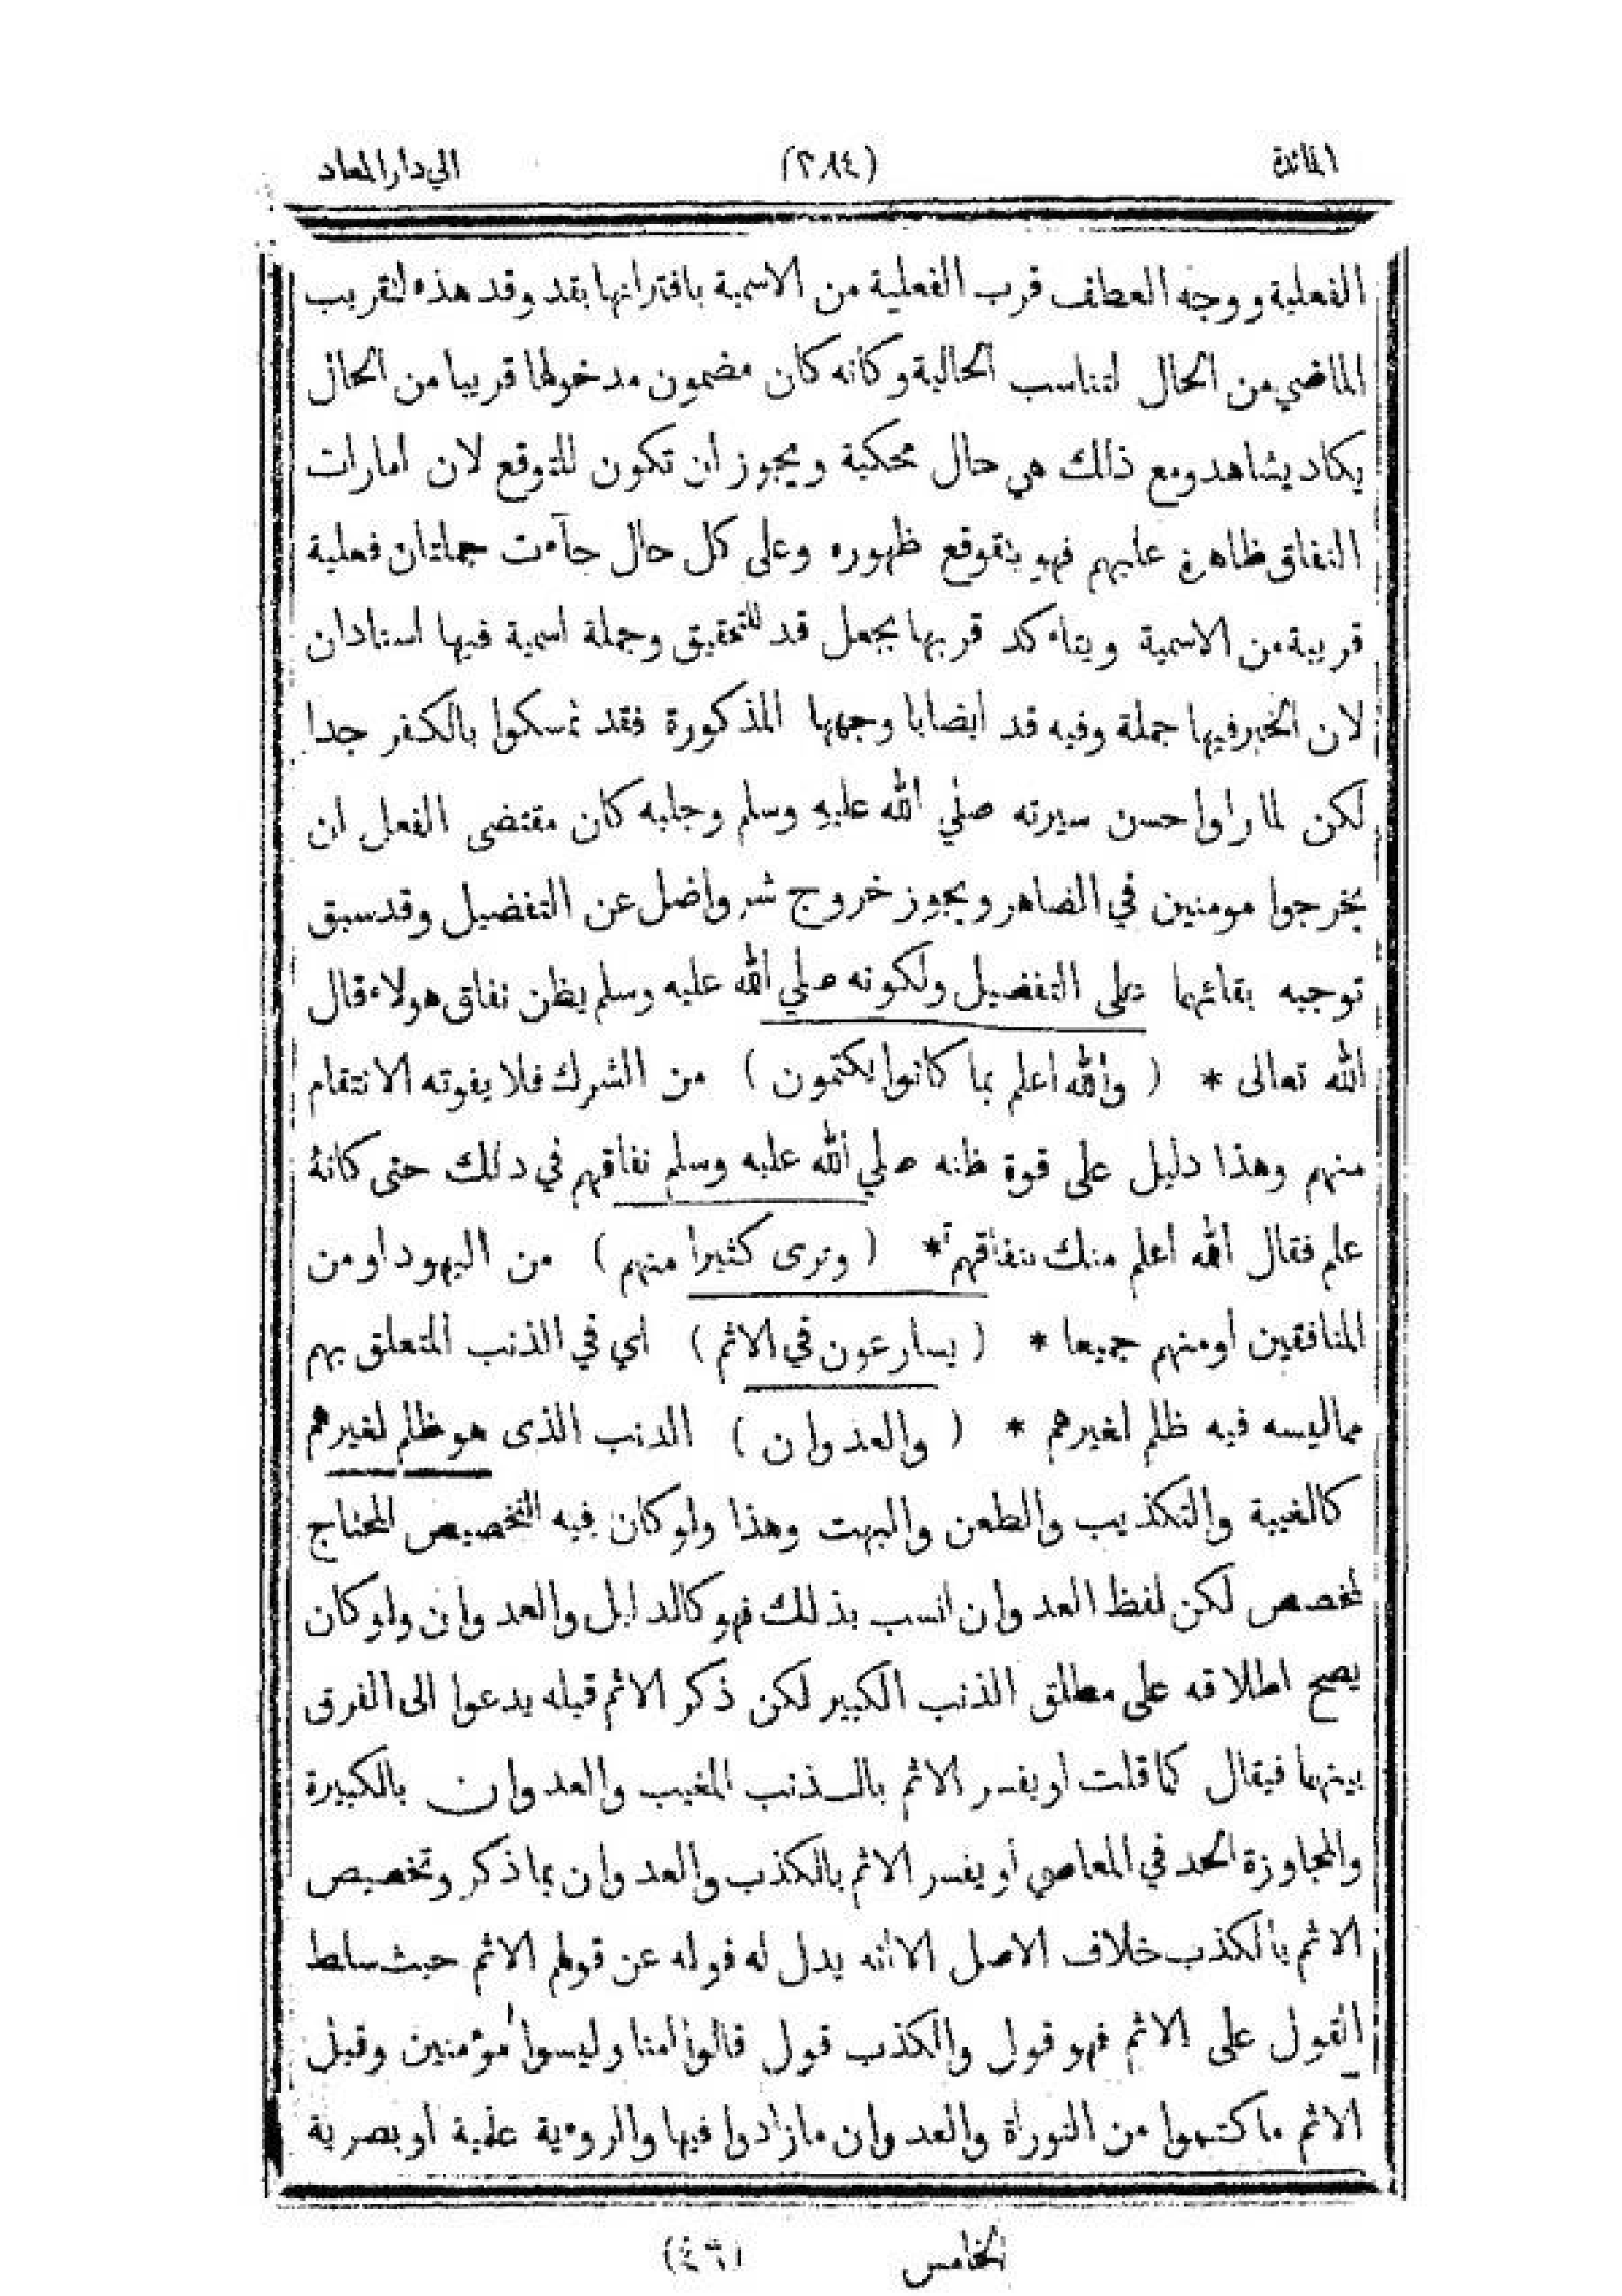 المائدة (٢٨٤) الي دار المعاد
الفعلية ووجه العطف قرب الفعلية من الاسمية باقترانها بقد وقد هذه لتقريب
الماضي من الحال لتناسب الحالية وكانه كان مضمون مدخولها قريبا من الحال
يكاد يشاهد ومع ذلك هي حال محكية ويجوز ان تكون للتوقع لان امارات
النفاق ظاهرة عليهم فهو يتوقع ظهوره وعلى كل حال جآءت جملتان فعلية
قريبة من الاسمية ويتاءكد قربها بجعل قد للتحقيق وجملة اسمية فيها اسنادان
لان الخبر فيها جملة وفيه قد ايضا با وجهها المذكورة فقد تمسكوا بالكفر جدا
لكن لما راوا حسن سيرته صلي الله عليه وسلم وجلبه كان مقتضى الفعل ان
يخرجوا مومنين في الضاهر ويجوز خروج شر واضل عن التفضيل وقد سبق
توجيه بقائهما على التفضيل ولكونه صلي الله عليه وسلم يظن نفاق هولاء قال
الله تعالى * ( والله اعلم بما كانوا يكتمون ) من الشرك فلا يفوته الانتقام
منهم وهذا دليل على قوة ظنه صلي الله عليه وسلم نفاقهم في ذلك حتى كانه
علم فقال الله اعلم منك بنفاقهم * ( وترى كثيرا منهم ) من اليهود او من
المنافقين او منهم جميعا * ( يسارعون في الاثم ) اي في الذنب المتعلق بهم
مماليسه فيه ظلم لغيرهم * ( والعدوان ) الدنب الذى هو ظلم لغيرهم
كالغيبة والتكذيب والطعن والبهت وهذا ولو كان فيه التخصيص المحتاج
لمخصص لكن لفظ العدوان انسب بذلك فهو كالدليل والعدوان ولو كان
يصح اطلاقه على مطلق الذنب الكبير لكن ذكر الاثم قبله يدعوا الى الفرق
بينهما فيقال كما قلت او يفسر الاثم بالـذنب المغيب والعدوان بالكبيرة
والمجاوزة الحد في المعاصي أو يفسر الاثم بالكذب والعدوان بما ذكر وتخصيص
الاثم بالكذب خلاف الاصل الا أنه يدل له قوله عن قولهم الاثم حيث سلط
القول على الاثم فهو قول والكذب قول قالوا امنا وليسوا مؤمنين وقيل
الاثم ما كتموا من التوراة والعدوان ما زادوا فيها والروءية علمية او بصرية
الخامس (٤٦)